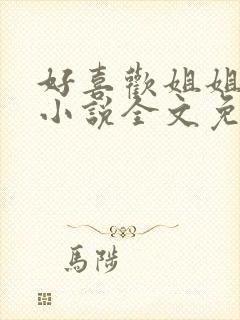 好喜歡姐姐
小說全文免
馬陟